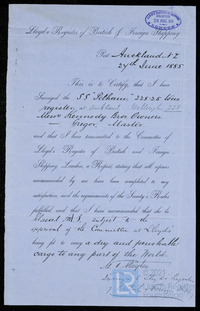 Lloyd's Register of British & Foreign Shipping
Port Auckland N.Z
27th June 1885
This is to Certify, that I have
Surveyed the SS "Pelham" 228.25 tons
register, at Auckland
Messrs Kennedy Bros Owners
Gregor, Master
and that I have transmitted to the Committee of
Lloyd's Register of British and Foreign
Shipping, London, a Report, stating that all repairs
recommended by me have been completed to my
satisfaction and the requirements of the Society's Rules
fulfilled, and that I have recommended that she be
Classed subject to the
approval of the Committee as Lloyd's
being fit to carry a dry and perishable
cargo to any part of the World.
LR